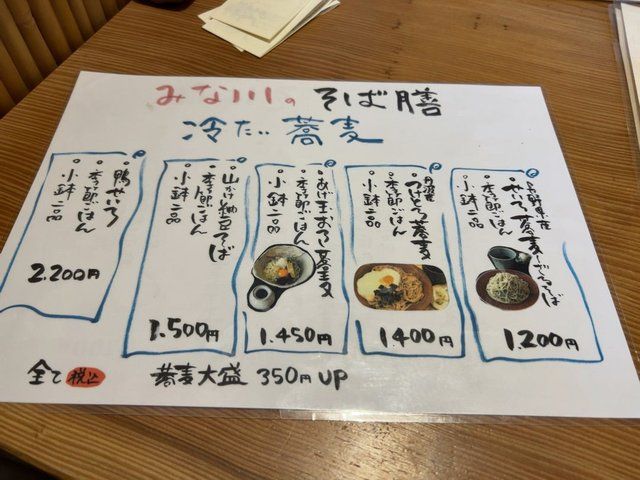 みな川の そば膳
冷たい 蕎麦
長野県産
・せいろ蕎麦
・季節ごはん
・小鉢二品
1.200円
丹波産
・つけとろ蕎麦
・季節ごはん
・小鉢二品
1400円
・あげ玉おろし蕎麦
・季節ごはん
・小鉢二品
1.450円
・山かけ納豆そば
・季節ごはん
・小鉢二品
1.500円
・鴨せいろ
・季節ごはん
・小鉢二品
2.200円
全て 税込
蕎麦大盛 350円 UP